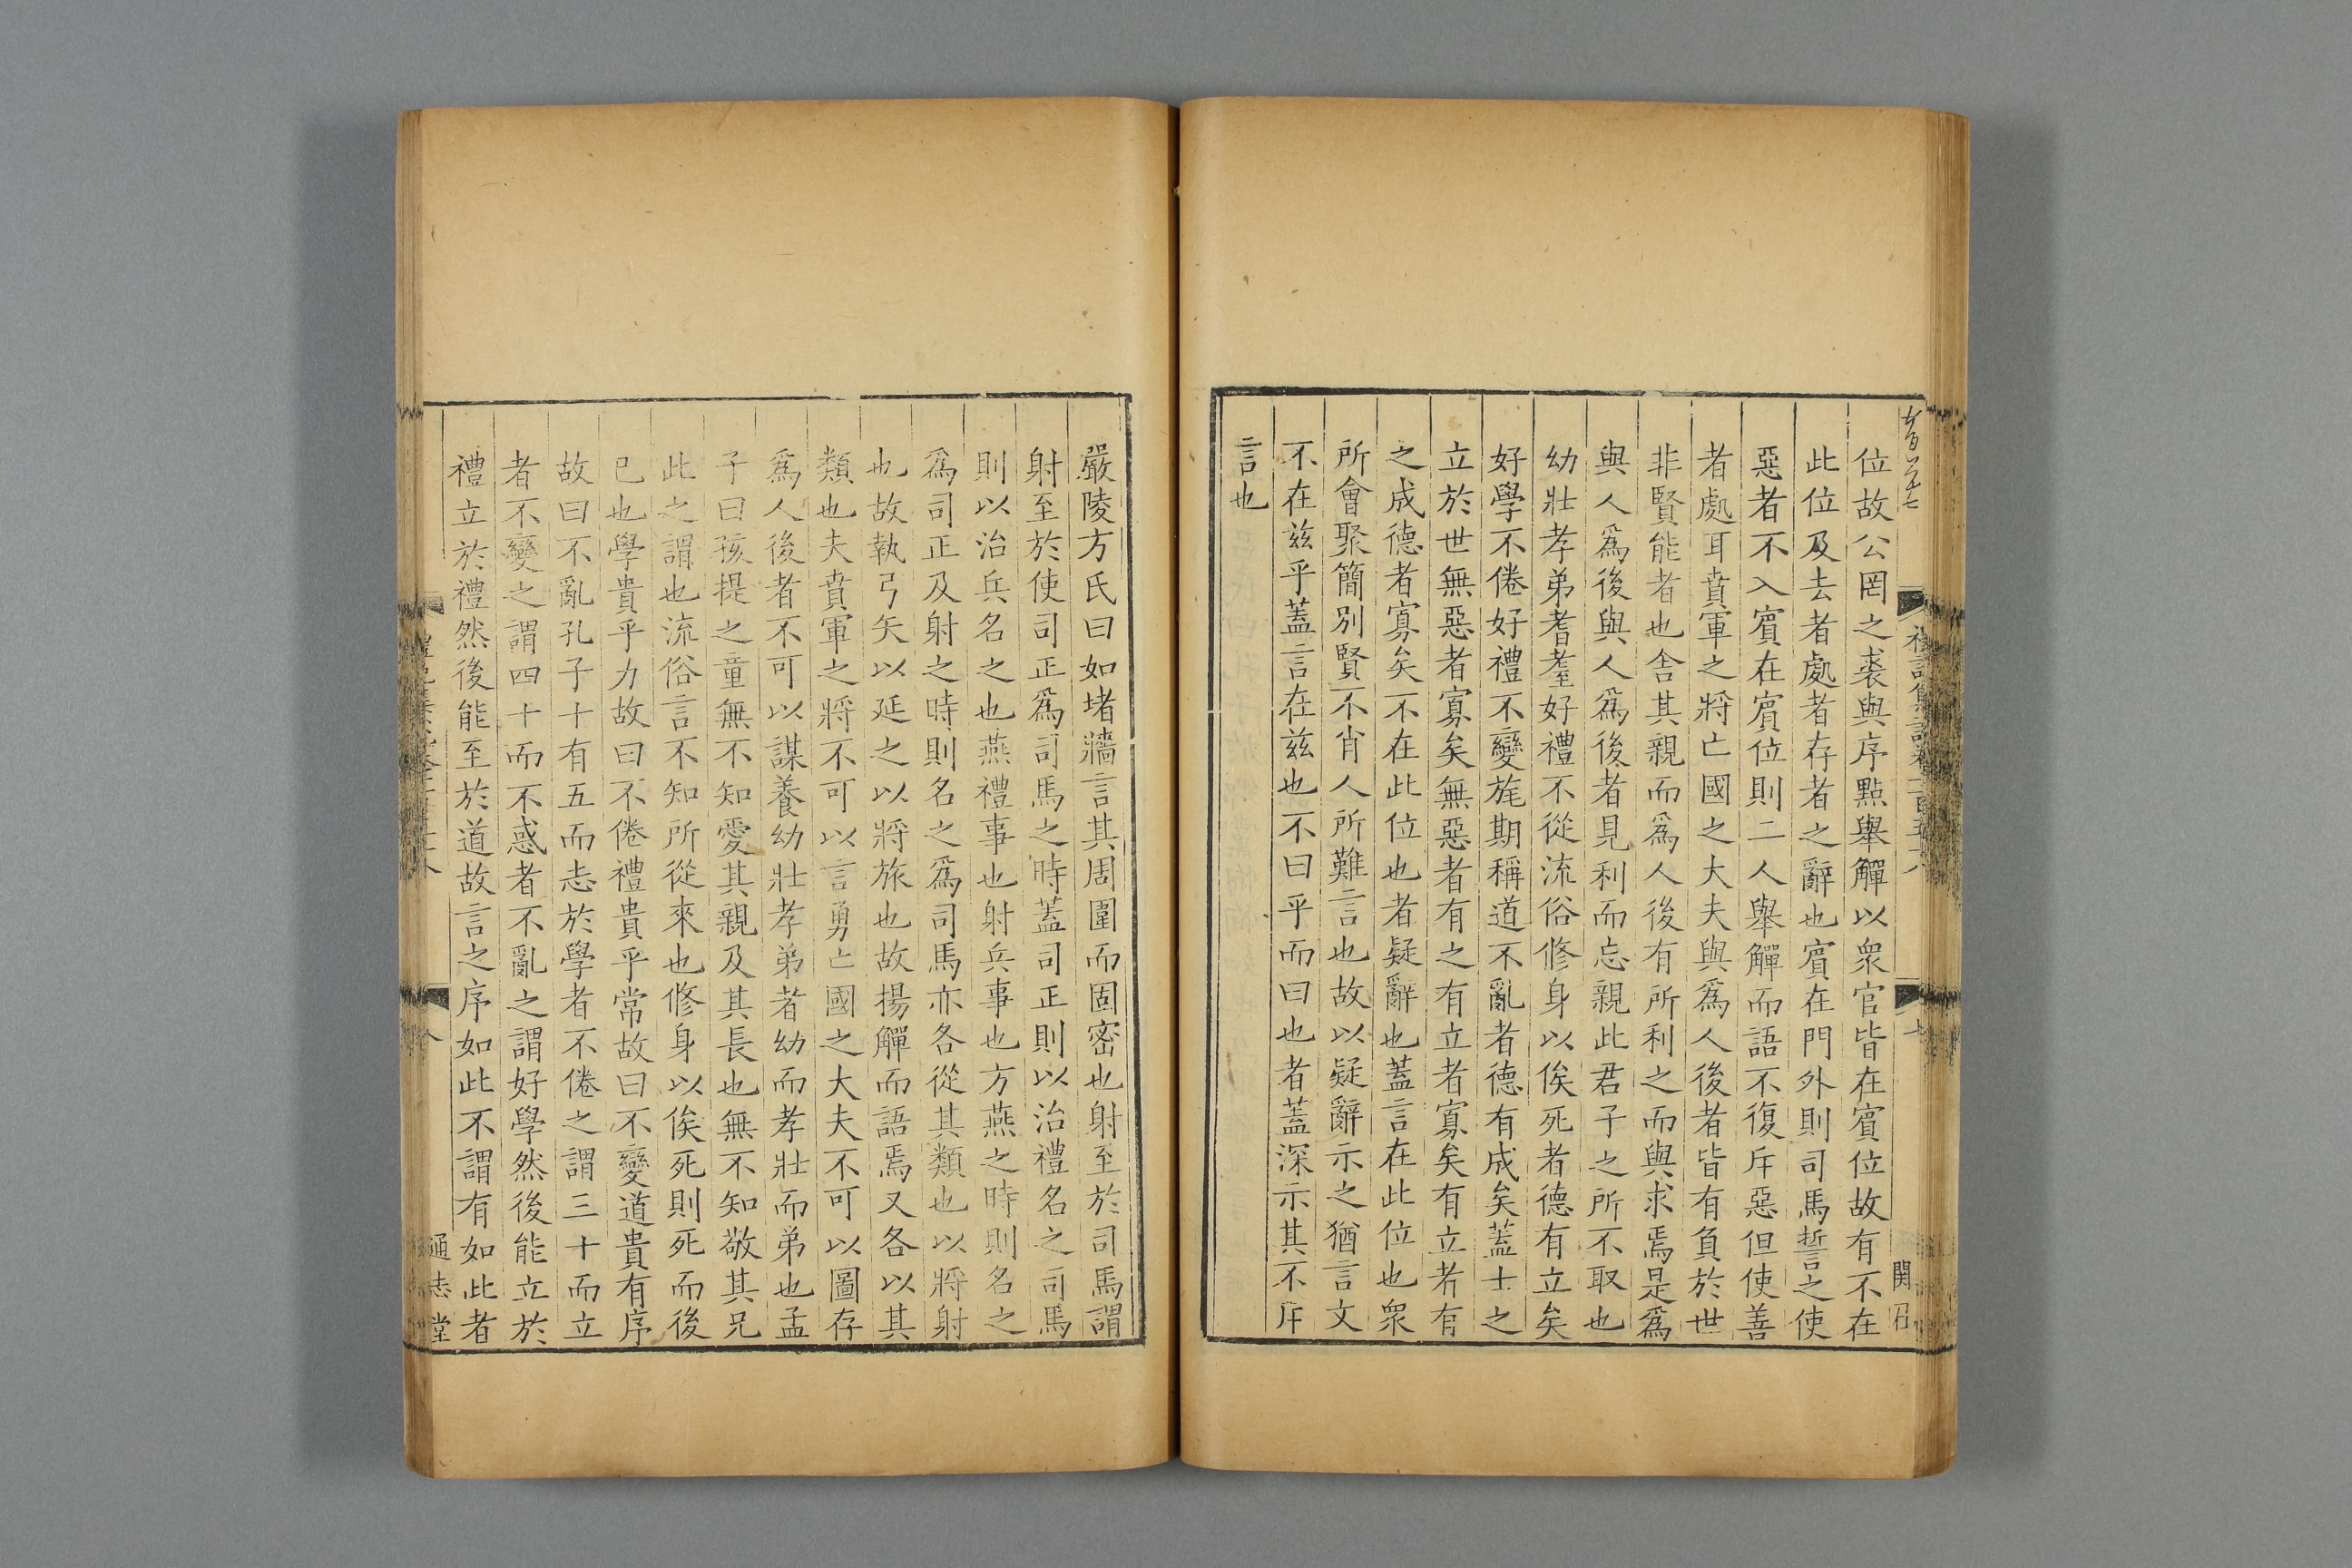 位故公罔之裘與序點舉觶以衆官皆在賓位故有不在
此位及去者處者存者之辭也賓在門外則司馬誓之使
惡者不入賓在賓位則二人舉觶而語不復斥惡但使善
者處耳賁軍之將亡國之大夫與爲人後者皆有負於世
非賢能者也舍其親而爲人後有所利之而與求焉是爲
與人爲後與人爲後者見利而忘親此君子之所不取也
幼壯孝弟耆耋好禮不從流俗修身以俟死者德有立矣
好學不倦好禮不變旄期稱道不亂者德有成矣蓋士之
立於世無惡者寡矣無惡者有之有立者寡矣有立者有
之成德者寡矣不在此位也者疑辭也蓋言在此位也衆
所會聚簡別賢不肖人所難言也故以疑辭示之猶言文
不在茲乎蓋言在茲也不曰乎而曰也者蓋深示其不斥
言也
嚴陵方氏曰如堵牆言其周圍而固密也射至於司馬謂
射至於使司正爲司馬之時蓋司正則以治禮名之司馬
則以治兵名之也燕禮事也射兵事也方燕之時則名之
爲司正及射之時則名之爲司馬亦各從其類也以將射
也故執弓矢以延之以將旅也故揚觶而語焉又各以其
類也夫賁軍之將不可以言勇亡國之大夫不可以圖存
爲人後者不可以謀養幼壯孝弟者幼而孝壯而弟也孟
子曰孩提之童無不知愛其親及其長也無不知敬其兄
此之謂也流俗言不知所從來也修身以俟死則死而後
已也學貴乎力故曰不倦禮貴乎常故曰不變道貴有序
故曰不亂孔子十有五而志於學者不倦之謂三十而立
者不變之謂四十而不惑者不亂之謂好學然後能立於
禮立於禮然後能至於道故言之序如此不謂有如此者
通志堂